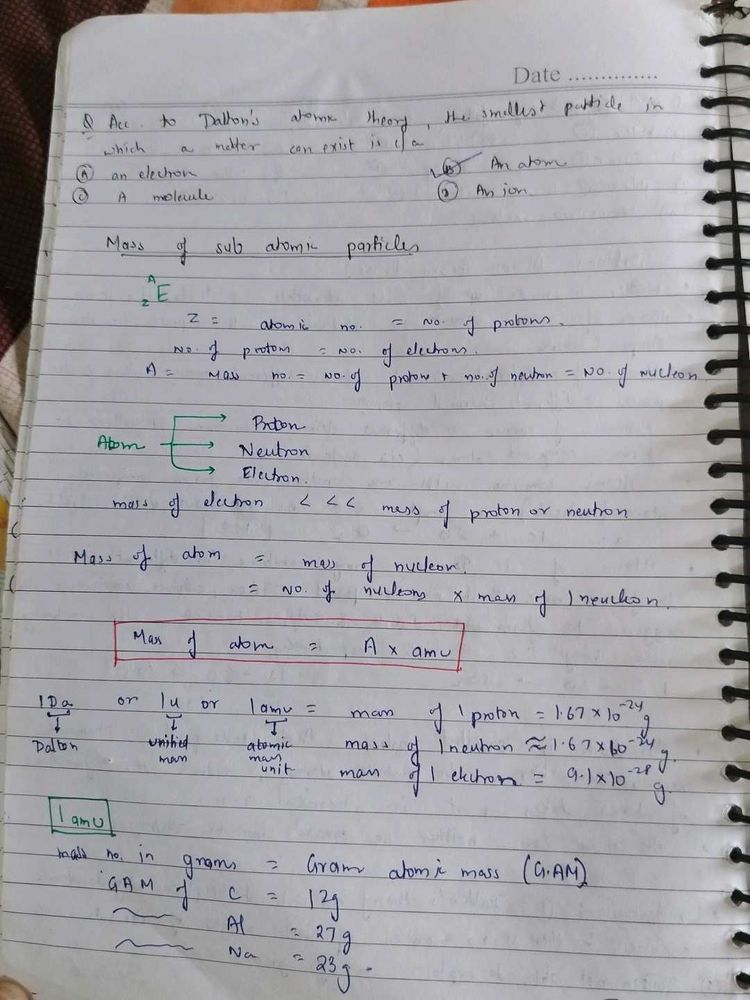 Date ..............
Q Acc. to Dalton's atomic theory, the smallest particle in
which a matter can exist is c/a
Ⓐ an electron Ⓑ An atom
Ⓒ A molecule Ⓓ An ion
Mass of sub atomic particles
A
Z E
Z = atomic no. = No. of protons.
No. of protons = No. of electrons.
A = Mass no. = No. of proton + no. of neutron = No. of nucleon.
Proton
Atom → Neutron
Electron.
mass of electron < < < mass of proton or neutron
Mass of atom = mass of nucleon.
= No. of nucleons × mass of 1 neuclron.
Mass of atom = A × amu
1Da or 1u or 1amu = mass of 1 proton = 1.67 × 10⁻²⁴ g
Dalton unified mass atomic mass unit mass of 1 neutron ≈ 1.67 × 10⁻²⁴ g.
mass of 1 electron = 9.1 × 10⁻²⁸ g.
1 amu
mass no. in grams = Gram atomic mass (G.AM)
GAM of C = 12g
Al = 27g
Na = 23g.